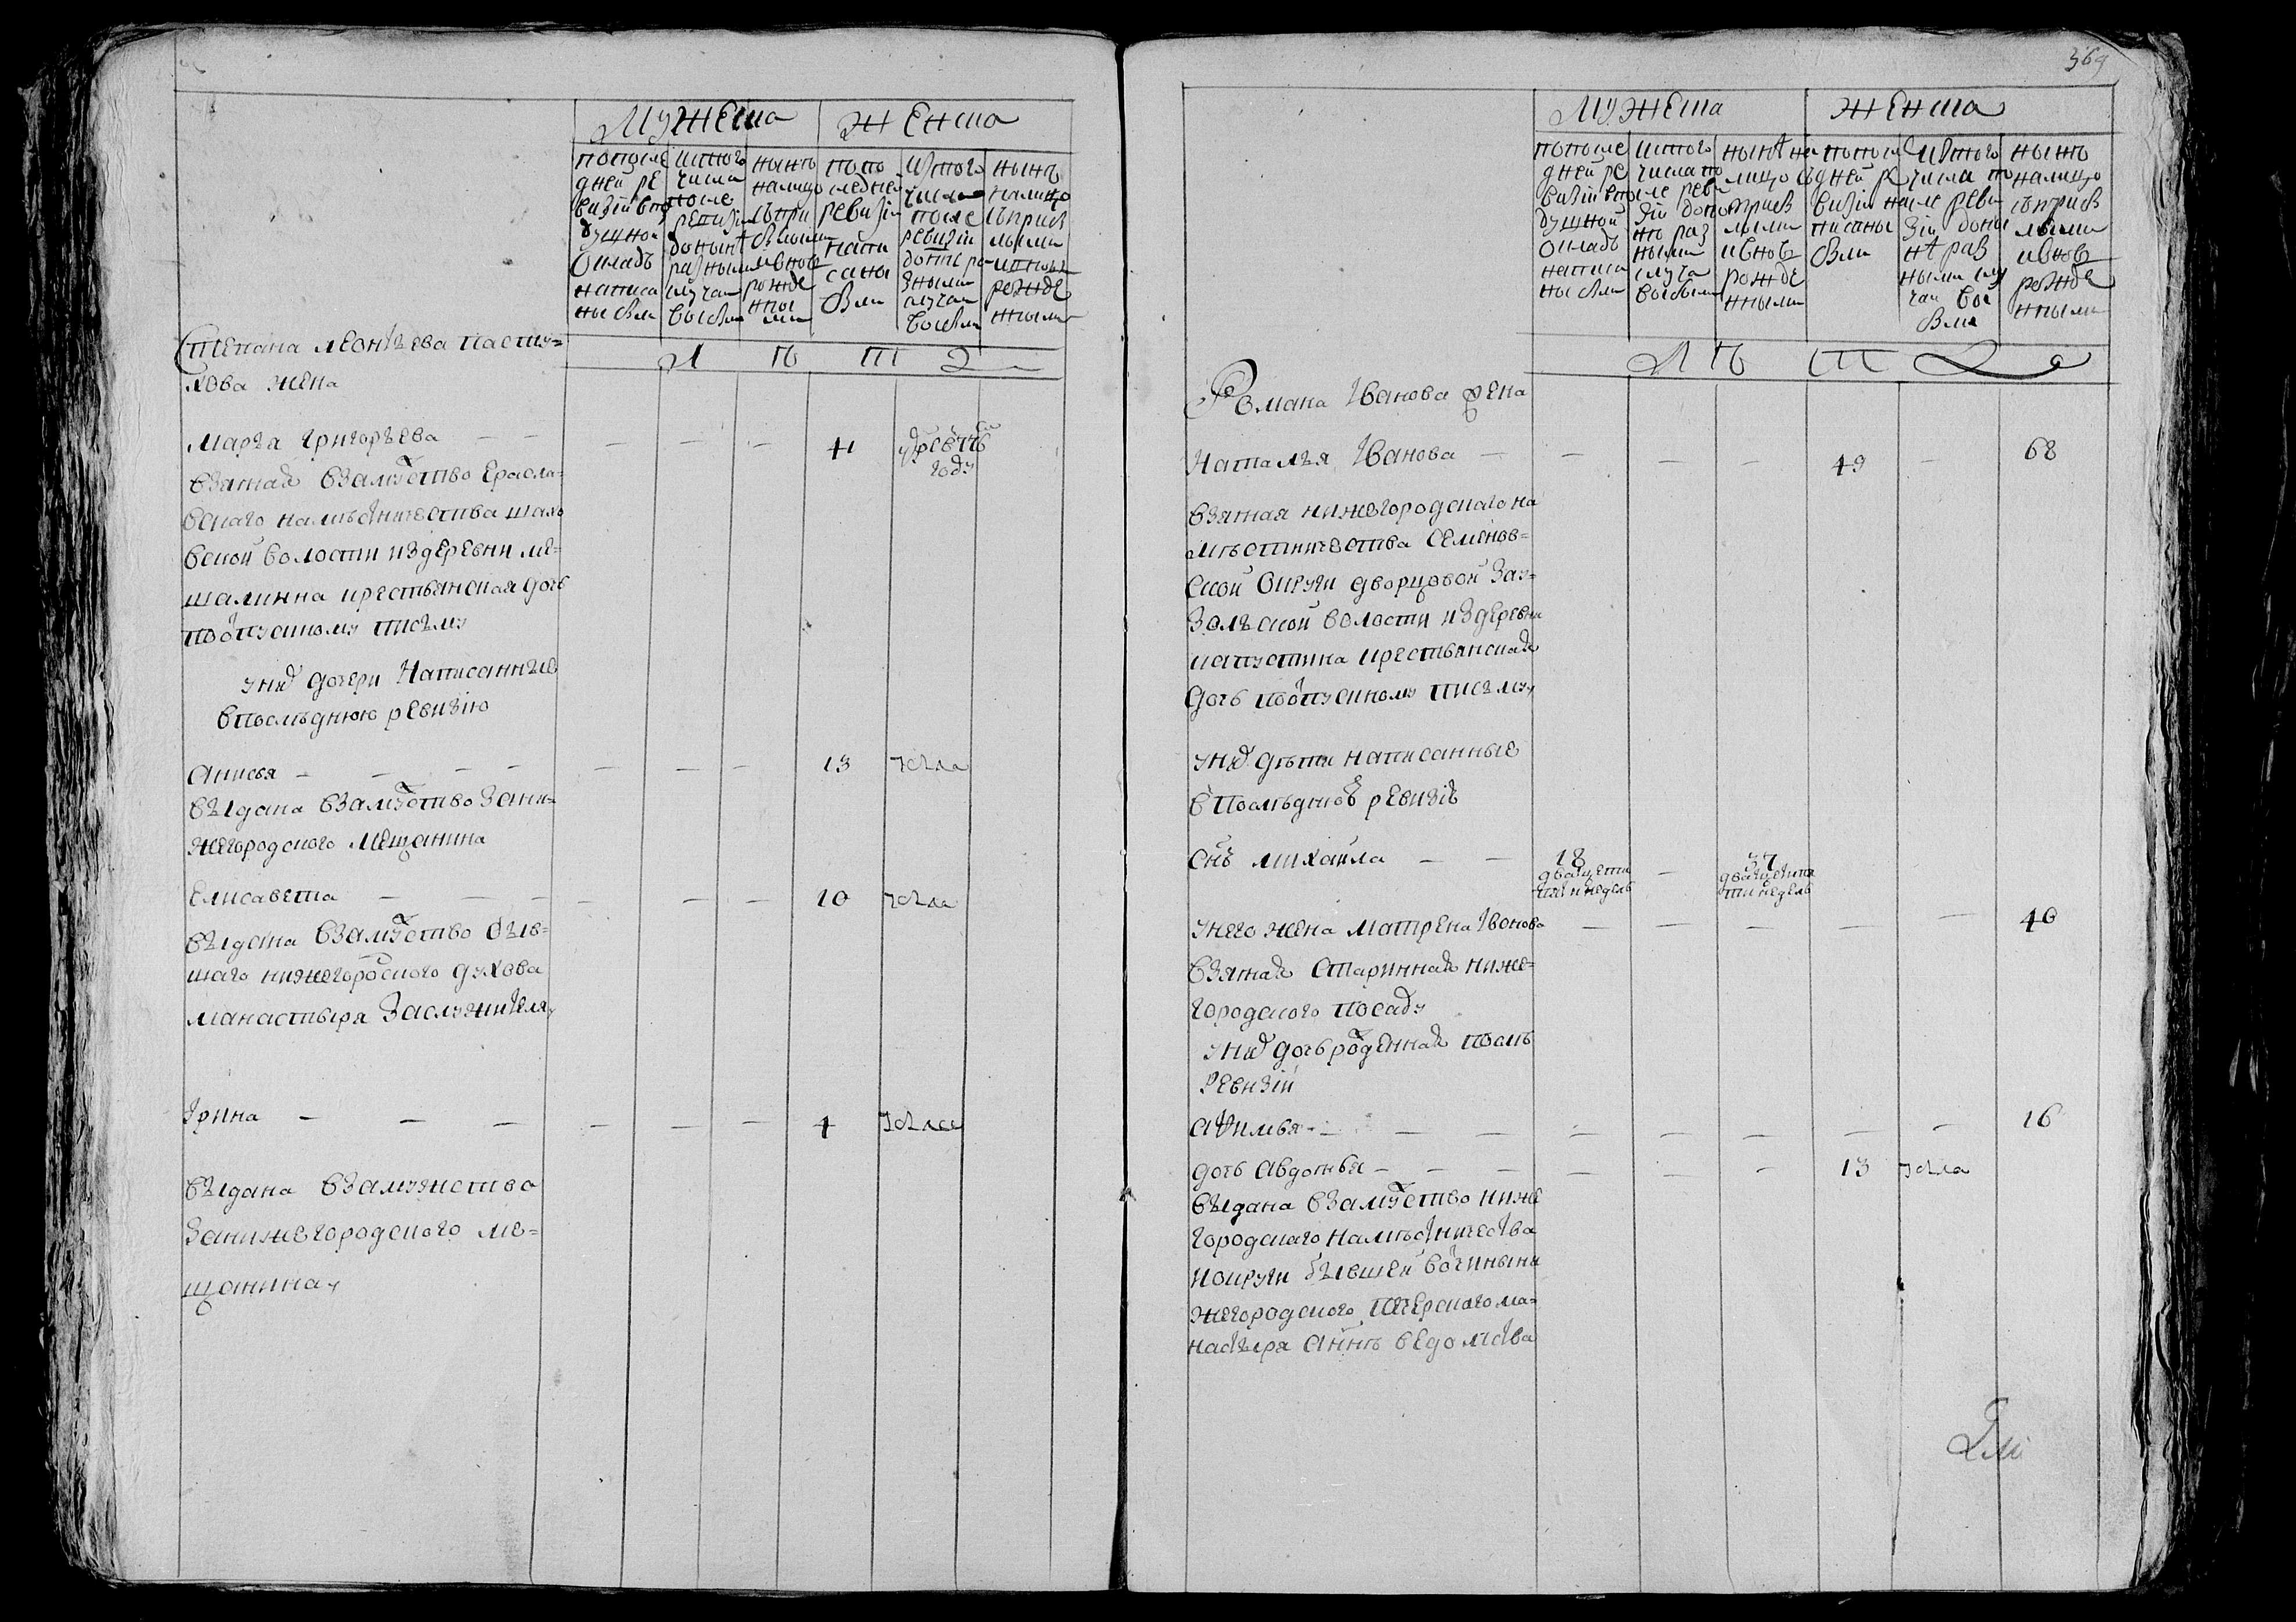 Мужеска Женска
попосле дней ре визіи впо душной окладъ написа ны были
истого числа после ревизіи донынѣ разными случаи выбыли
нынѣ налицо съ прибылыми ивновь рожде нными
попо следней ревизіи напи саны были
истого числа после ревизіи донынѣ ра зными случаи выбыли
нынѣ налицо съприб лыми ивновь рожде нными
Лѣта
Степана Леонтьева пасту=
хова жена
Марѳа Григорьева — — — — — 41 умре в 776 году
взятая взамуство Ерасла=
вскаго намѣстничества
вской волости издеревни ме=
шалкина крестьянская дочь
поотпускному письму
унеѣ дочери Написанные
впослѣднюю ревизію
Анисья — — — — — — — 13 убыла
выдана взамуство зани=
жегородского мещанина
Елисавета — — — — — — 10 убыла
выдана взамуство быв=
шаго нижегородского духова
манастыря заслужителя
Ірина — — — — — — 4 убыла
выдана взамужство
занижегородского ме=
щанина
369
Мужеска Женска
попосле дней ре визіи впо душной окладъ написа ны были
истого числа по сле реви зіи доны нѣ раз ными случа выбыли
нынѣ на лицо съ прибы лыми ивновь рожде нными
попосле дней ре визіи на писаны были
истого числа по сле реви зіи доны нѣ раз ными слу чаи вы были
нынѣ налицо съприб лыми ивновь рожде нными
Лѣта
Романа Иванова жена
Наталья Иванова — — — — 49 — 68
взятая нижегородскаго на
мѣстничества Семенов=
ской Округи дворцовой Зау=
зольской волости издеревни
капустина крестьянская
дочь поотпускному письму
унеѣ дѣти написанные
впослѣдней ревизіи
Снъ михаила — — 18 двацети пяти недель — 37 двацети пяти недель
унего жена матрена Иванова — — — — — 40
взятая старинная ниже=
городского посаду
унеѣ дочь рожденная послѣ
Ревизіи
аѳимья — — — — — — — — 16
дочь авдотья — — — — — — 13 убыла
выдана взамуство ниже
городскаго намѣстничества
иокруги бывшей вотчины ни
жегородского печерскаго ма=
настыря аннѣ ведомства